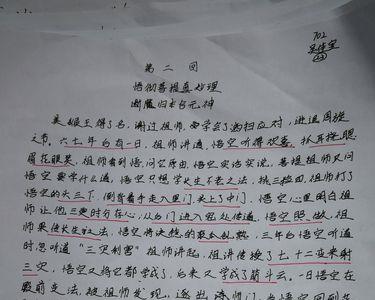 702
第二回
悟彻菩提真妙理
断魔归本合元神
美猴王得了名，谢过祖师，要学会了洒扫应对，进退周旋
之节。六七年后有一日，祖师讲道，悟空听得欢喜，抓耳挠腮
眉花眼笑，祖师看到悟问空原由，悟空实话实说，菩提祖师又问
悟空要学什么道，悟空只想学长生不老之法，挨三拾四，祖师打了
悟空的头三下，倒背着手走入里门，关上了中门，悟空心里明白祖师
让他三更时分存心，从后门进入密处传道，悟空照做，祖
师果传长生妙法，悟空将决然的融会贯熟，三年后悟空听道
时忽听道"三灾利害"祖师讲起，祖讲传授了七十二变来躲
三灾，悟空又将它都学成，后来又学成了筋斗云。一日悟空在
众前变法，被祖师发现，逐出师门，